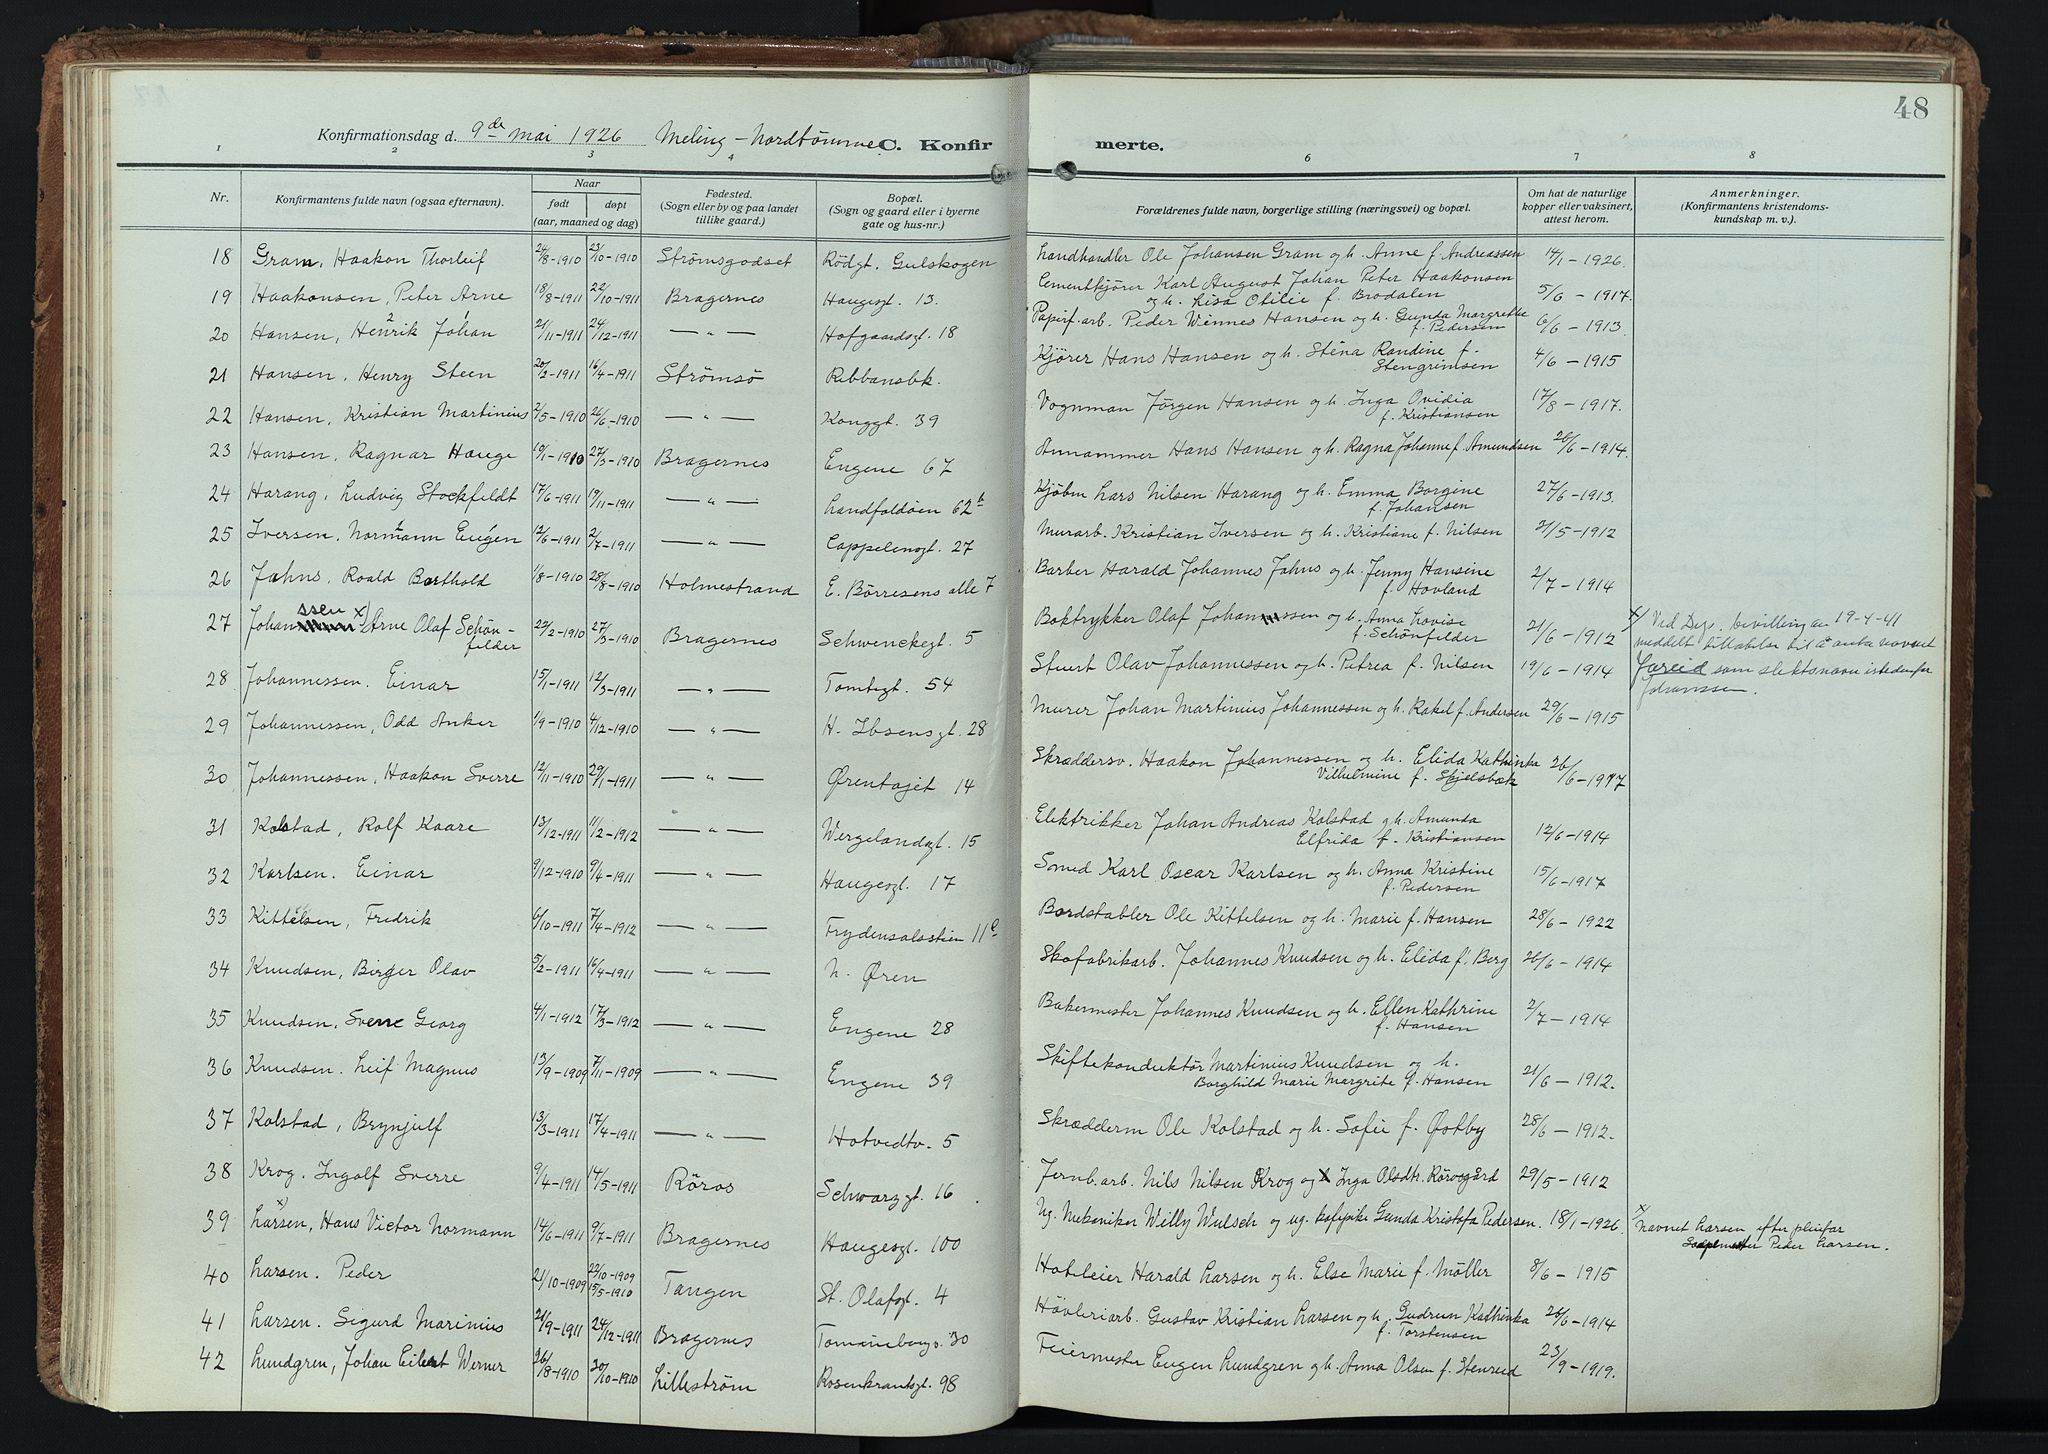 48
Konfirmationsdag d. 9de mai 1926 Meling - Nordtømme C. Konfirmerte.
1 2 3 4 6 7 8
Nr. Konfirmantens fulde navn (ogsaa efternavn). Naar født døpt (aar, maaned og dag) Fødested. (Sogn eller by og paa landet tillike gaard.) Bopæl. (Sogn og gaard eller i byerne gate og hus-nr.) Forældrenes fulde navn, borgerlige stilling (næringsvei) og bopæl. Om hat de naturlige kopper eller vaksinert, attest herom. Anmerkninger. (Konfirmantens kristendomskundskap m. v.).
18 Gram, Haakon Thorleif 24/8-1910 23/10-1910 Strømsgodset Rødgt. Gulskogen Landhandler Ole Johansen Gram og h. Anne f. Andreassen 14/1-1926.
19 Haakonsen, Peter Arne 18/8-1911 22/10-1911 Bragernes Haugesgt. 13. Cementkjører Karl August Johan Peter Haakonsen og h. Lisa Otilie f. Brodalen 5/6-1917.
20 Hansen, Henrik Johan 21/11-1911 24/12-1911 — " — Hofgaardsgt. 18 Papirf. arb. Peder Wennes Hansen og h. Gunda Margrethe f. Pedersen 6/6-1913.
21 Hansen, Henry Steen 20/2-1911 16/4-1911 Strømsø Ribbansbk. Kjører Hans Hansen og h. Stena Randine f. Stengrimsen 4/6-1915
22 Hansen, Kristian Martinius 2/5-1910 26/6-1910 — " — Konggt. 39 Vognman Jørgen Hansen og h. Inga Ovidia f. Kristiansen 17/8-1917.
23 Hansen, Ragnar Hauge 19/1-1910 27/3-1910 Bragernes Engene 67 Annammer Hans Hansen og h. Ragna Johanne f. Amundsen 26/6-1914.
24 Harang, Ludvig Stockfeldt 17/6-1911 19/11-1911 — " — Landfaldøen 62b Kjøbm Lars Nilsen Harang og h. Emma Borgine f. Johansen 27/6-1913.
25 Iversen, Normann Eugen 12/6-1911 2/7-1911 — " — Cappelensgt. 27 Murarb. Kristian Iversen og h. Kristiane f. Nilsen 21/5-1912
26 Jahns, Roald Barthold 1/8-1910 28/8-1910 Holmestrand E. Børresens alle 7 Barber Harald Johannes Jahns og h. Jenny Hansine f. Hovland 2/7-1914
27 Johanssen x) Arne Olaf Schønfelder 22/2-1910 27/3-1910 Bragernes Schwenckegt. 5 Boktrykker Olaf Johanssen og h. Anna Lovise f. Schønfelder 21/6-1912 x/ Ved Dep. bevilling av 19-4-41 meddelt tillatelse til å anta navnet Jareid som slektsnavn istedenfor Johanssen.
28 Johannessen. Einar 15/1-1911 12/3-1911 — " — Tomtegt. 54 Stuert Olav Johannessen og h. Petrea f. Nilsen 19/6-1914
29 Johannessen, Odd Anker 1/9-1910 4/12-1910 — " — H. Ibsensgt. 28 Murer Johan Martinius Johannessen og h. Rakel f. Andersen 29/6-1915
30 Johannessen, Haakon Sverre 12/11-1910 29/1-1911 — " — Ørentajet 14 Skræddersv. Haakon Johannessen og h. Elida Kathinka Vilhelmine f. Skjelsbæk 26/6-1917
31 Kolstad, Rolf Kaare 13/12-1911 11/2-1912 — " — Wergelandsgt. 15 Elektrikker Johan Andreas Kolstad og h. Amunda Elfrida f. Kristiansen 12/6-1914
32 Karlsen. Einar 9/12-1910 9/4-1911 — " — Haugesgt. 17 Smed Karl Oscar Karlsen og h. Anna Kristine f. Pedersen 15/6-1917
33 Kittelsen, Fredrik 6/10-1911 7/4-1912 — " — Frydensalsstien 11c Bordstabler Ole Kittelsen og h. Marie f. Hansen 28/6-1922
34 Knudsen, Birger Olav 5/2-1911 16/4-1911 — " — N. Øren Skofabrikarb. Johannes Knudsen og h. Elida f. Berg 26/6-1914
35 Knudsen, Sverre Georg 4/1-1912 17/3-1912 — " — Engene 28 Bakermester Johannes Knudsen og h. Ellen Kathrine f. Hansen 2/7-1914
36 Knudsen. Leif Magnus 13/9-1909 7/11-1909 — " — Engene 39 Skiftekonduktør Martinius Knudsen og h. Borghild Marie Margrite f. Hansen 21/6-1912.
37 Kolstad, Brynjulf 13/3-1911 17/4-1911 — " — Hotvedtv. 5 Skrædderm Ole Kolstad og h. Sofie f. Østby 28/6-1912.
38 Krog. Ingolf Sverre 9/4-1911 14/5-1911 Røros Schwarzgt. 16. Jernb. arb. Nils Nilsen Krog og Inga Olsdtr. Rørosgård 29/5-1912
39 Larsen, x) Hans Victor Normann 14/6-1911 9/7-1911 Bragernes Haugesgt. 100 Ug. Mekaniker Willy Wulsch og ug. kafepike Gunda Kristofa Pedersen. 18/1-1926. x/ Navnet Larsen efter pleiefar Peder Larsen.
40 Larsen. Peder 21/10-1909 22/10-1909 15/5-1910 Tangen St. Olafsgt. 4 Hoteleier Harald Larsen og h. Else Marie f. Møller 8/6-1915
41 Larsen. Sigurd Marinius 21/9-1911 24/12-1911 Bragernes Tomineborgv. 30 Høvleriarb. Gustav Kristian Larsen og h. Gudrun Kathinka f. Torstensen 26/6-1914
42 Lundgren, Johan Eilert Werner 26/8-1910 30/10-1910 Lillestrøm Rosenkrantzgt. 98 Feiermester Eugen Lundgren og h. Anna Olsen f. Stenreid 23/9-1919.